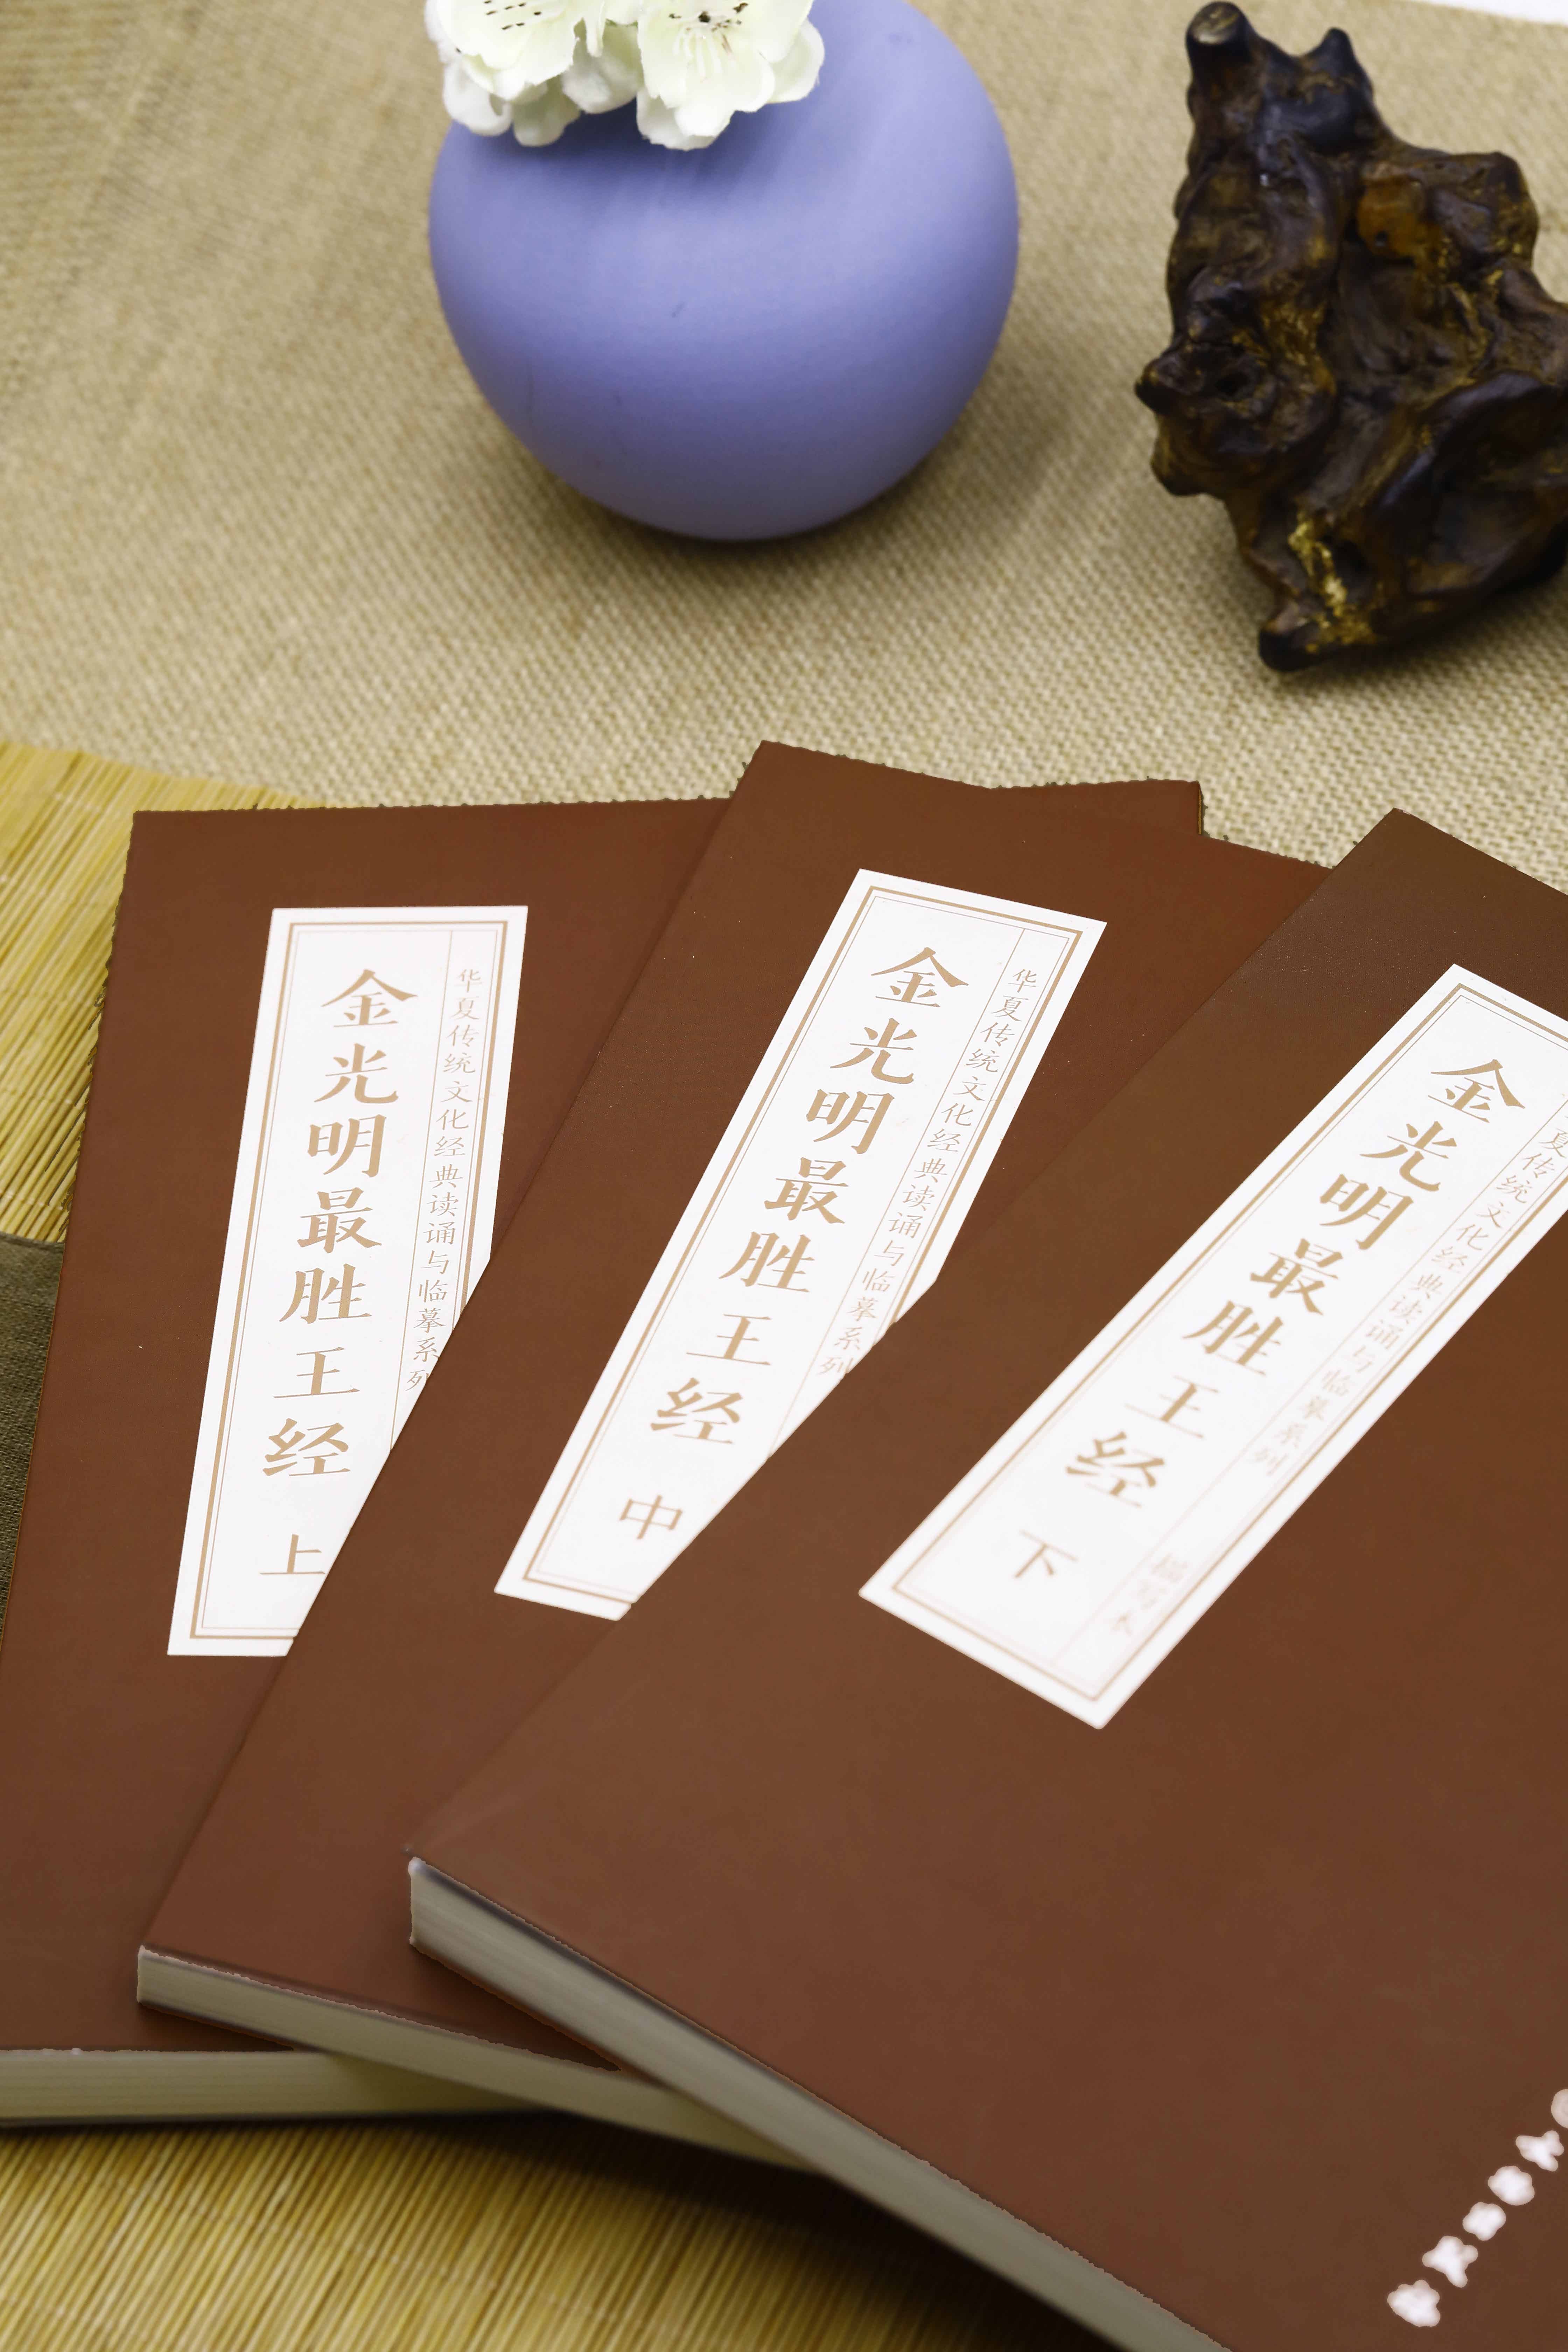 华夏传统文化经典读诵与临摹系列
金光明最胜王经 上
华夏传统文化经典读诵与临摹系列
金光明最胜王经 中
夏传统文化经典读诵与临摹系列 描写本
金光明最胜王经 下